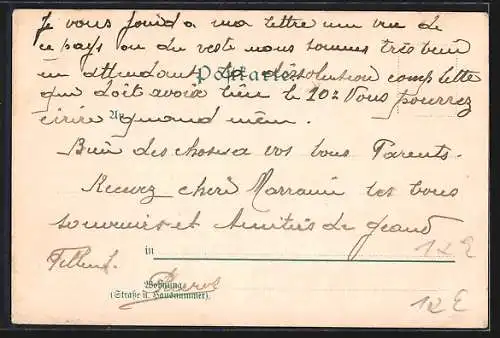 Je vous joind a ma lettre une vue de
ce pays ou du reste nous sommes très bien
en attendant la dissolution complette
Postkarte.
qui doit avoir lieu le 10: Vous pourrez
ecrire quand mem.
Bien des choses a vos bons Parents.
Recevez cher Marraine les bons
souvenirs et amitiés de grand
in
12 E
Filleul.
Pierre
Wohnung
(Straße u. Hausnummer).
12 E